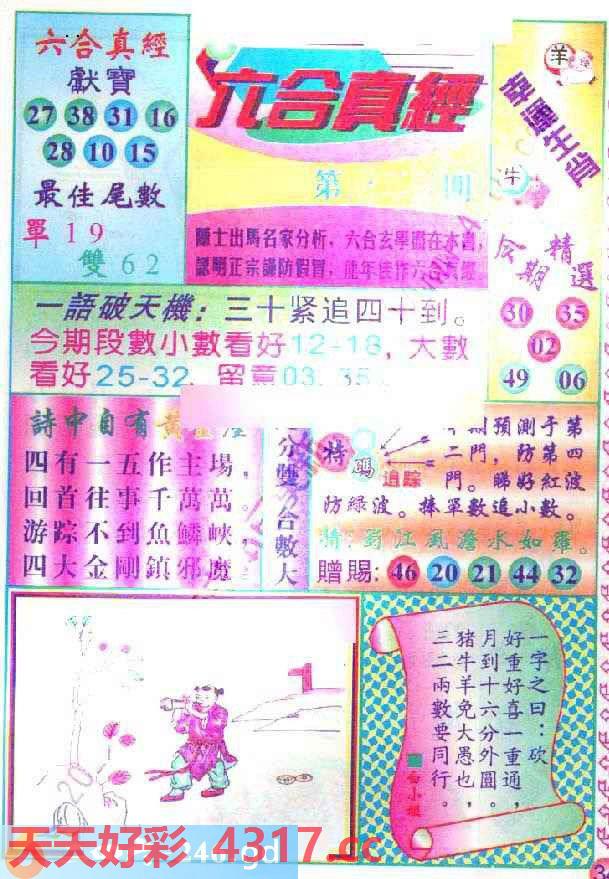 六合真經
獻寶
27 38 31 16
28 10 15
最佳尾數
單19
雙62
六合真經
第 期
隱士出馬名家分析,六合玄學盡在本書,
認明正宗謹防假冒,龍年佳作六合真經
羊
幸運生肖
牛
今期精選
30 35
02
49 06
一語破天機:三十紧追四十到。
今期段數小數看好12-18,大數
看好25-32,留意03,35
詩中自有黃
四有一五作主場,
回首往事千萬萬。
游踪不到魚鱗峽,
四大金剛鎮邪魔
分雙合數大
特碼追踪
期預測于第
二門,防第四
門。睇好紅波
防綠波。捧單數追小數。
江風澹水如
贈賜:46 20 21 44 32
一字之曰:砍
好重好喜一重通,
月到十六分外圓,
猪牛羊兔大愚也,
三二兩數要同行。
白小姐
天天好彩 4317.cc
246.gd
3